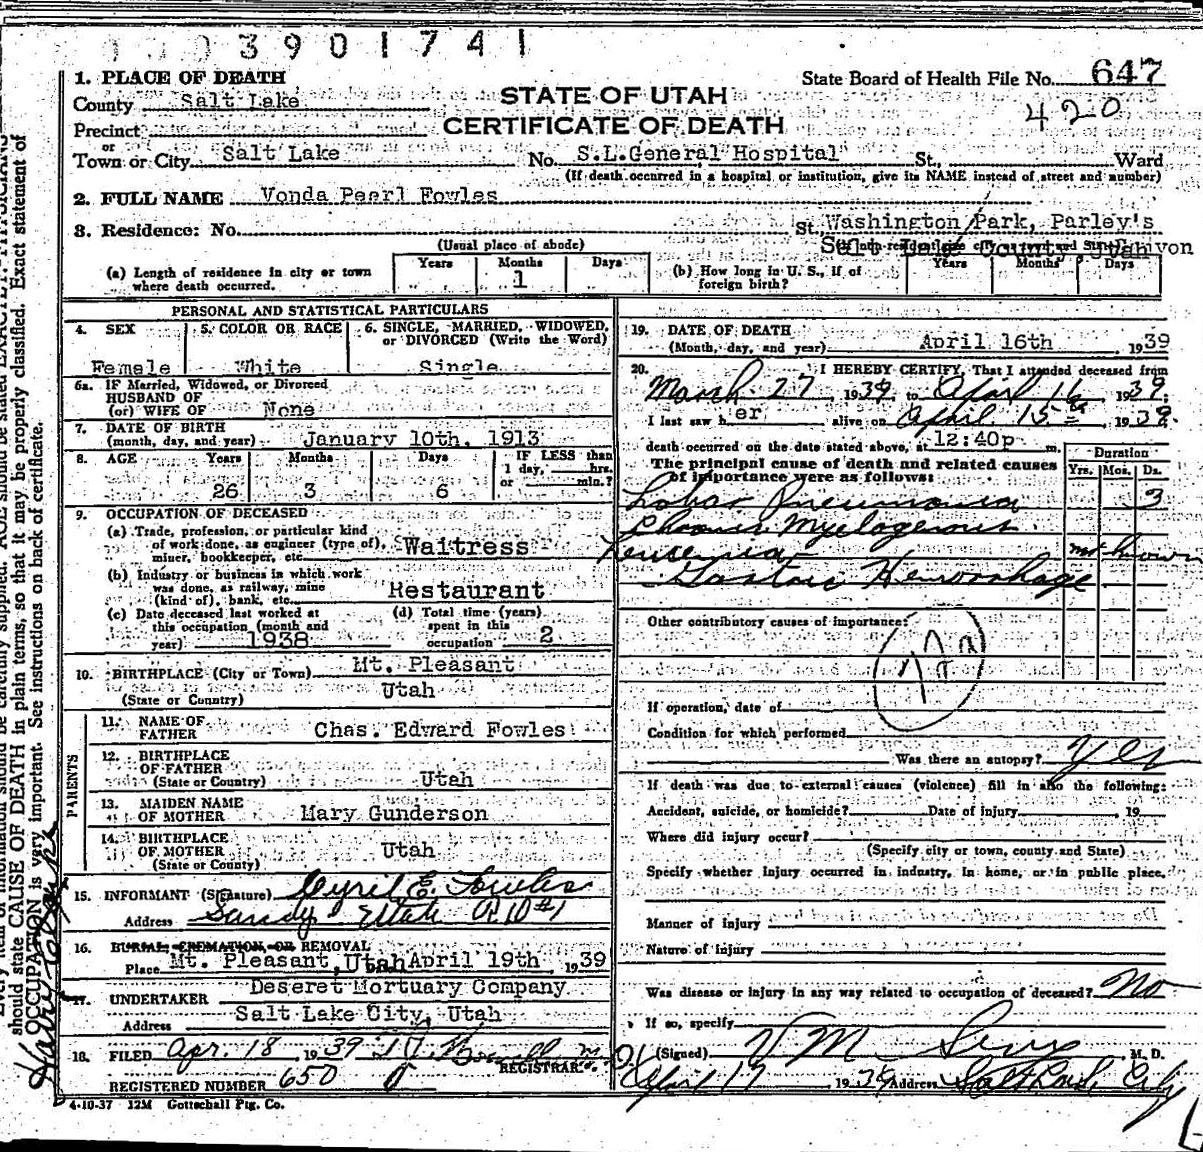 3901741
1. PLACE OF DEATH
State Board of Health File No. 647
County Salt Lake
STATE OF UTAH
420
Precinct
CERTIFICATE OF DEATH
or
Town or City Salt Lake No. S.L.General Hospital St., Ward
(If death occurred in a hospital or institution, give its NAME instead of street and number)
2. FULL NAME Vonda Pearl Fowles
3. Residence: No. St. Washington Park, Parley's
(Usual place of abode) Salt Lake County, Utah
(a) Length of residence in city or town where death occurred. Years Months 1 Days
(b) How long in U. S., if of foreign birth? Years Months Days
PERSONAL AND STATISTICAL PARTICULARS
4. SEX Female
5. COLOR OR RACE White
6. SINGLE, MARRIED, WIDOWED, or DIVORCED (Write the Word) Single
6a. IF Married, Widowed, or Divorced
HUSBAND OF
(or) WIFE OF None
7. DATE OF BIRTH
(month, day, and year) January 10th, 1913
8. AGE Years 26 Months 3 Days 6 IF LESS than 1 day, hrs. or min.?
9. OCCUPATION OF DECEASED
(a) Trade, profession, or particular kind
of work done, as engineer (type of),
miner, bookkeeper, etc. Waitress
(b) Industry or business in which work
was done, as railway, mine
(kind of), bank, etc. Restaurant
(c) Date deceased last worked at
this occupation (month and
year) 1938
(d) Total time (years)
spent in this
occupation 2
10. BIRTHPLACE (City or Town) Mt. Pleasant
(State or Country) Utah
PARENTS
11. NAME OF
FATHER Chas. Edward Fowles
12. BIRTHPLACE
OF FATHER
(State or Country) Utah
13. MAIDEN NAME
OF MOTHER Mary Gunderson
14. BIRTHPLACE
OF MOTHER
(State or County) Utah
15. INFORMANT (Signature) Cyril E. Fowles
Address Sandy Utah R D #1
16. BURIAL, CREMATION, OR REMOVAL
Place Mt. Pleasant, Utah April 19th, 1939
17. UNDERTAKER Deseret Mortuary Company
Address Salt Lake City, Utah
18. FILED Apr. 18, 1939
REGISTRAR.
REGISTERED NUMBER 650
4-10-37 12M Gottschall Ptg. Co.
19. DATE OF DEATH
(Month, day, and year) April 16th 1939
20. I HEREBY CERTIFY, That I attended deceased from
March 27, 1939, to April 16 1939;
I last saw her alive on April 15 1939
death occurred on the date stated above, at 12:40p m.
The principal cause of death and related causes
of importance were as follows:
Duration
Yrs. Mos. Ds.
Lobar Pneumonia 3
Chronic Myelogenous
Leucemia not known
Gastric Hemorrhage
Other contributory causes of importance:
If operation, date of
Condition for which performed
Was there an autopsy? Yes
If death was due to external causes (violence) fill in also the following:
Accident, suicide, or homicide? Date of injury 19
Where did injury occur?
(Specify city or town, county and State)
Specify whether injury occurred in industry, in home, or in public place,
Manner of injury
Nature of injury
Was disease or injury in any way related to occupation of deceased? No
If so, specify
(Signed) V M M. D.
April 17 1939 Address Salt Lake City
should state CAUSE OF DEATH in plain terms, so that it may be properly classified. Exact statement of
OCCUPATION is very important. See instructions on back of certificate.